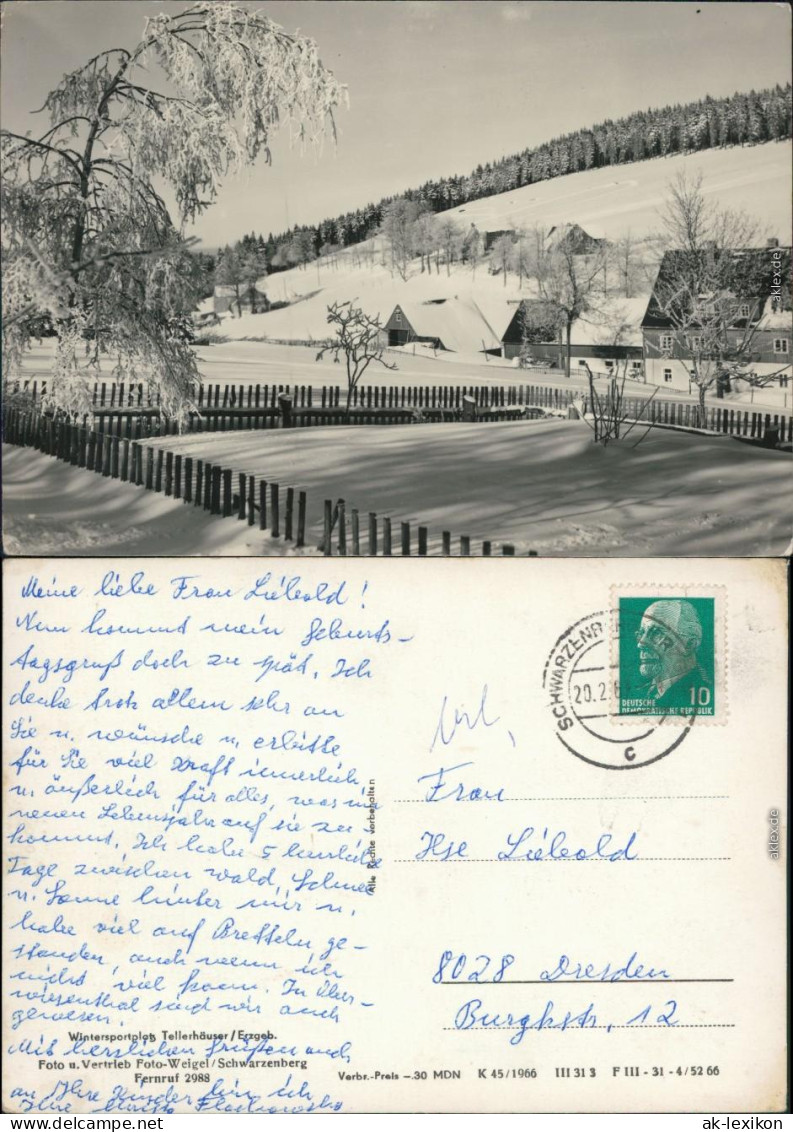 Meine liebe Frau Liebold!
Nun kommt mein Geburts-
tagsgruß doch zu spät. Ich
denke trotz allem sehr an
Sie u. wünsche u. erbitte
für Sie viel Kraft innerlich
u. äußerlich für alles, was im
neuen Lebensjahr auf sie zu-
kommt. Ich habe 5 herrliche
Tage zwischen Wald, Schnee
u. Sonne hinter mir u.
habe viel auf Bretteln ge-
standen, auch wenn ich
nicht viel kann. In Ober-
wiesenthal sind wir auch
gewesen.
Mit herzlichen Grüßen auch
an Ihre Kinder bin ich
Ihre
Wintersportplatz Tellerhäuser/Erzgeb.
Foto u. Vertrieb Foto-Weigel/Schwarzenberg
Fernruf 2988
Verbr.-Preis —.30 MDN K 45/1966 III 31 3 F III - 31 - 4/52 66
Alle Rechte vorbehalten
SCHWARZENB
20.2.
c
10
DEUTSCHE
DEMOKRATISCHE REPUBLIK
Frau
Ilse Liebold
8028 Dresden
Burgkstr. 12
aklex.de
aklex.de
ak-lexikon.de